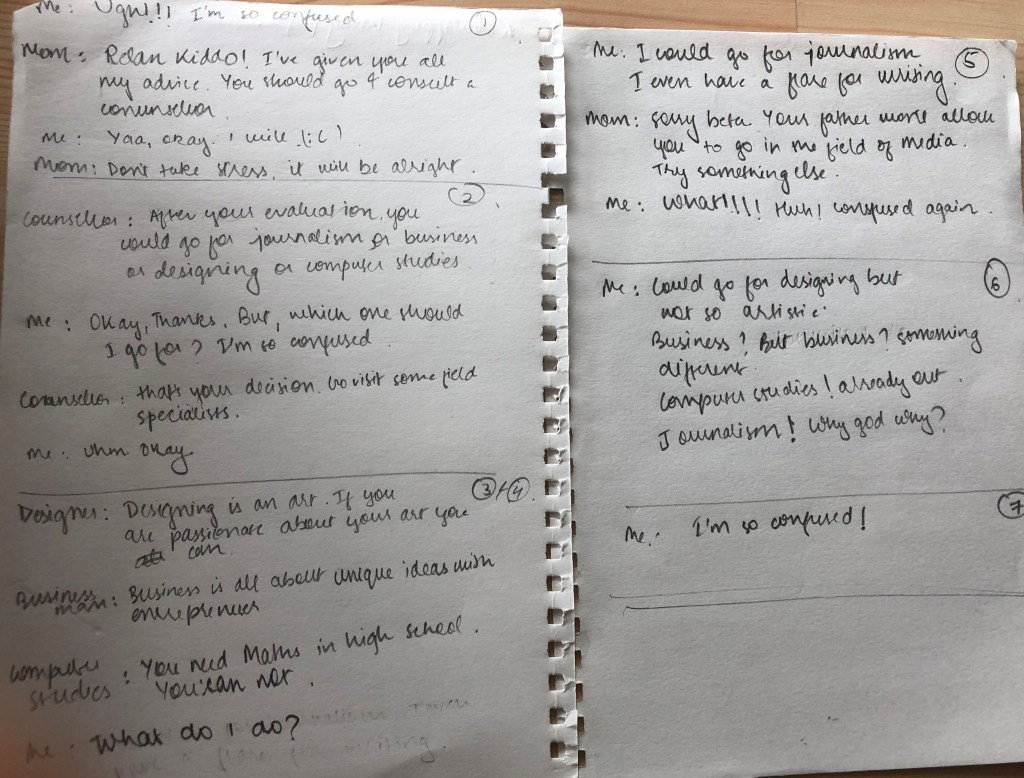 Me: Ugh!!! I'm so confused
①
Mom: Relax Kiddo! I've given you all
my advice. You should go & consult a
counsellor.
Me: Yaa, okay. I will :(
Mom: Don't take stress, it will be alright.
②
Counsellor: After your evaluation, you
could go for journalism or business
or designing or computer studies.
Me: Okay, Thanks. But, which one should
I go for? I'm so confused.
Counsellor: that's your decision. Go visit some field
specialists.
Me: uhm okay
③+④
Designer: Designing is an art. If you
are passionate about your art you
can.
Business man: Business is all about unique ideas with
entrepreneurs
Computer studies: You need Maths in high school.
You can not.
Me: What do I do?
⑤
Me: I could go for journalism
I even have a flare for writing.
Mom: Sorry beta. Your father won't allow
you to go in the field of media.
Try something else.
Me: What!!!! Huh! confused again.
⑥
Me: Could go for designing but
not so artistic.
Business? But business? something
different.
Computer studies! already out.
Journalism! Why god why?
⑦
Me: I'm so confused!